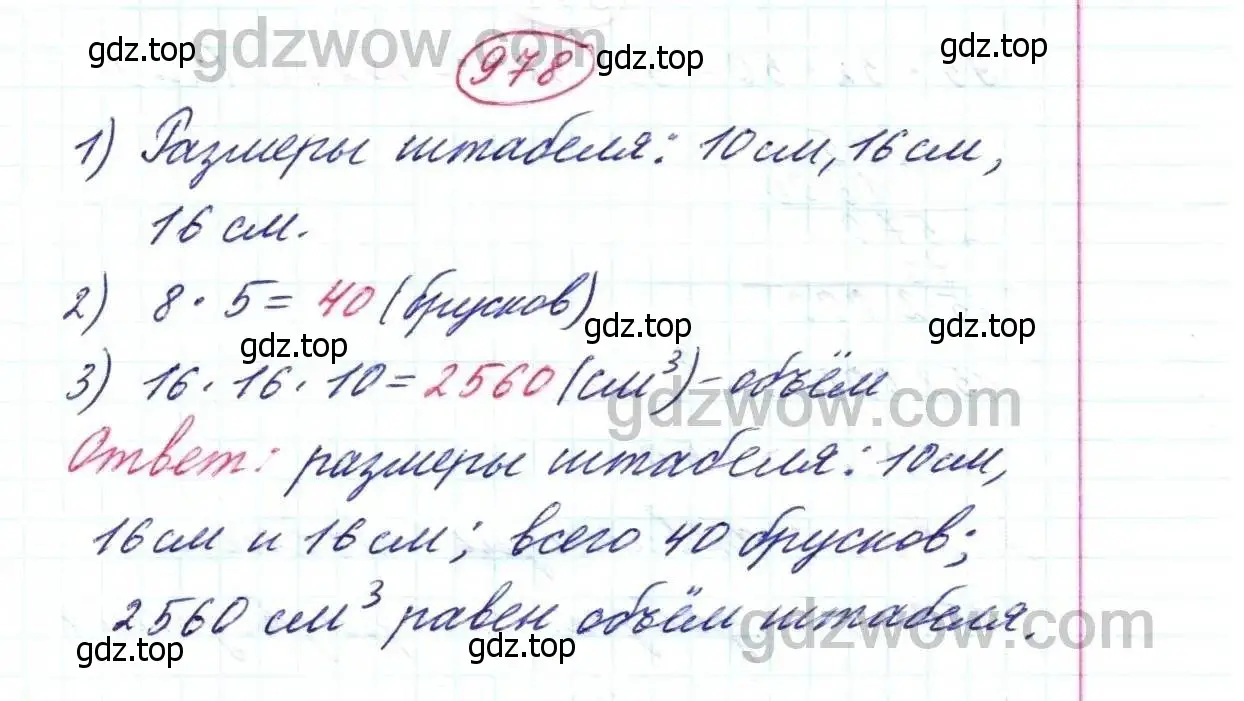 gdzwow.com
gdz.top 978 gdz.top gdz.top
1) Размеры штабеля: 10 см, 16 см,
16 см.
2) 8 · 5 = 40 (брусков)
gdz.top gdz.top gdz.top
3) 16 · 16 · 10 = 2560 (см³) – объём
gdzwow.com
Ответ: размеры штабеля: 10 см,
16 см и 16 см; всего 40 брусков;
2560 см³ равен объём штабеля.
gdzwow.com
gdz.top gdz.top